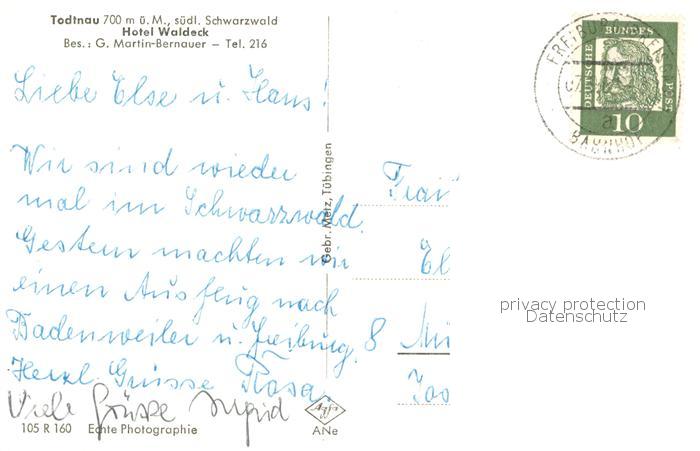 Todtnau 700 m ü. M., südl. Schwarzwald
Hotel Waldeck
Bes.: G. Martin-Bernauer – Tel. 216
Liebe Else u. Hans!
Wir sind wieder
mal im Schwarzwald.
Gestern machten wir
einen Ausflug nach
Badenweiler u. Freiburg.
Herzl. Grüsse Rosa.
Viele Grüsse Ingrid
105 R 160 Echte Photographie
Gebr. Metz, Tübingen
Agfa
ANe
DEUTSCHE BUNDESPOST
10
FREIBURG
a
BAHNHOF
Frau
El
8 Mü
privacy protection
Datenschutz